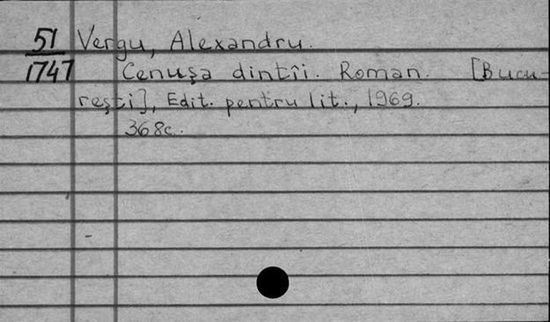 51 Vergu, Alexandru.
1747 Cenușa dintîi. Roman. [Bucu-
rești], Edit. pentru lit., 1969.
368c.